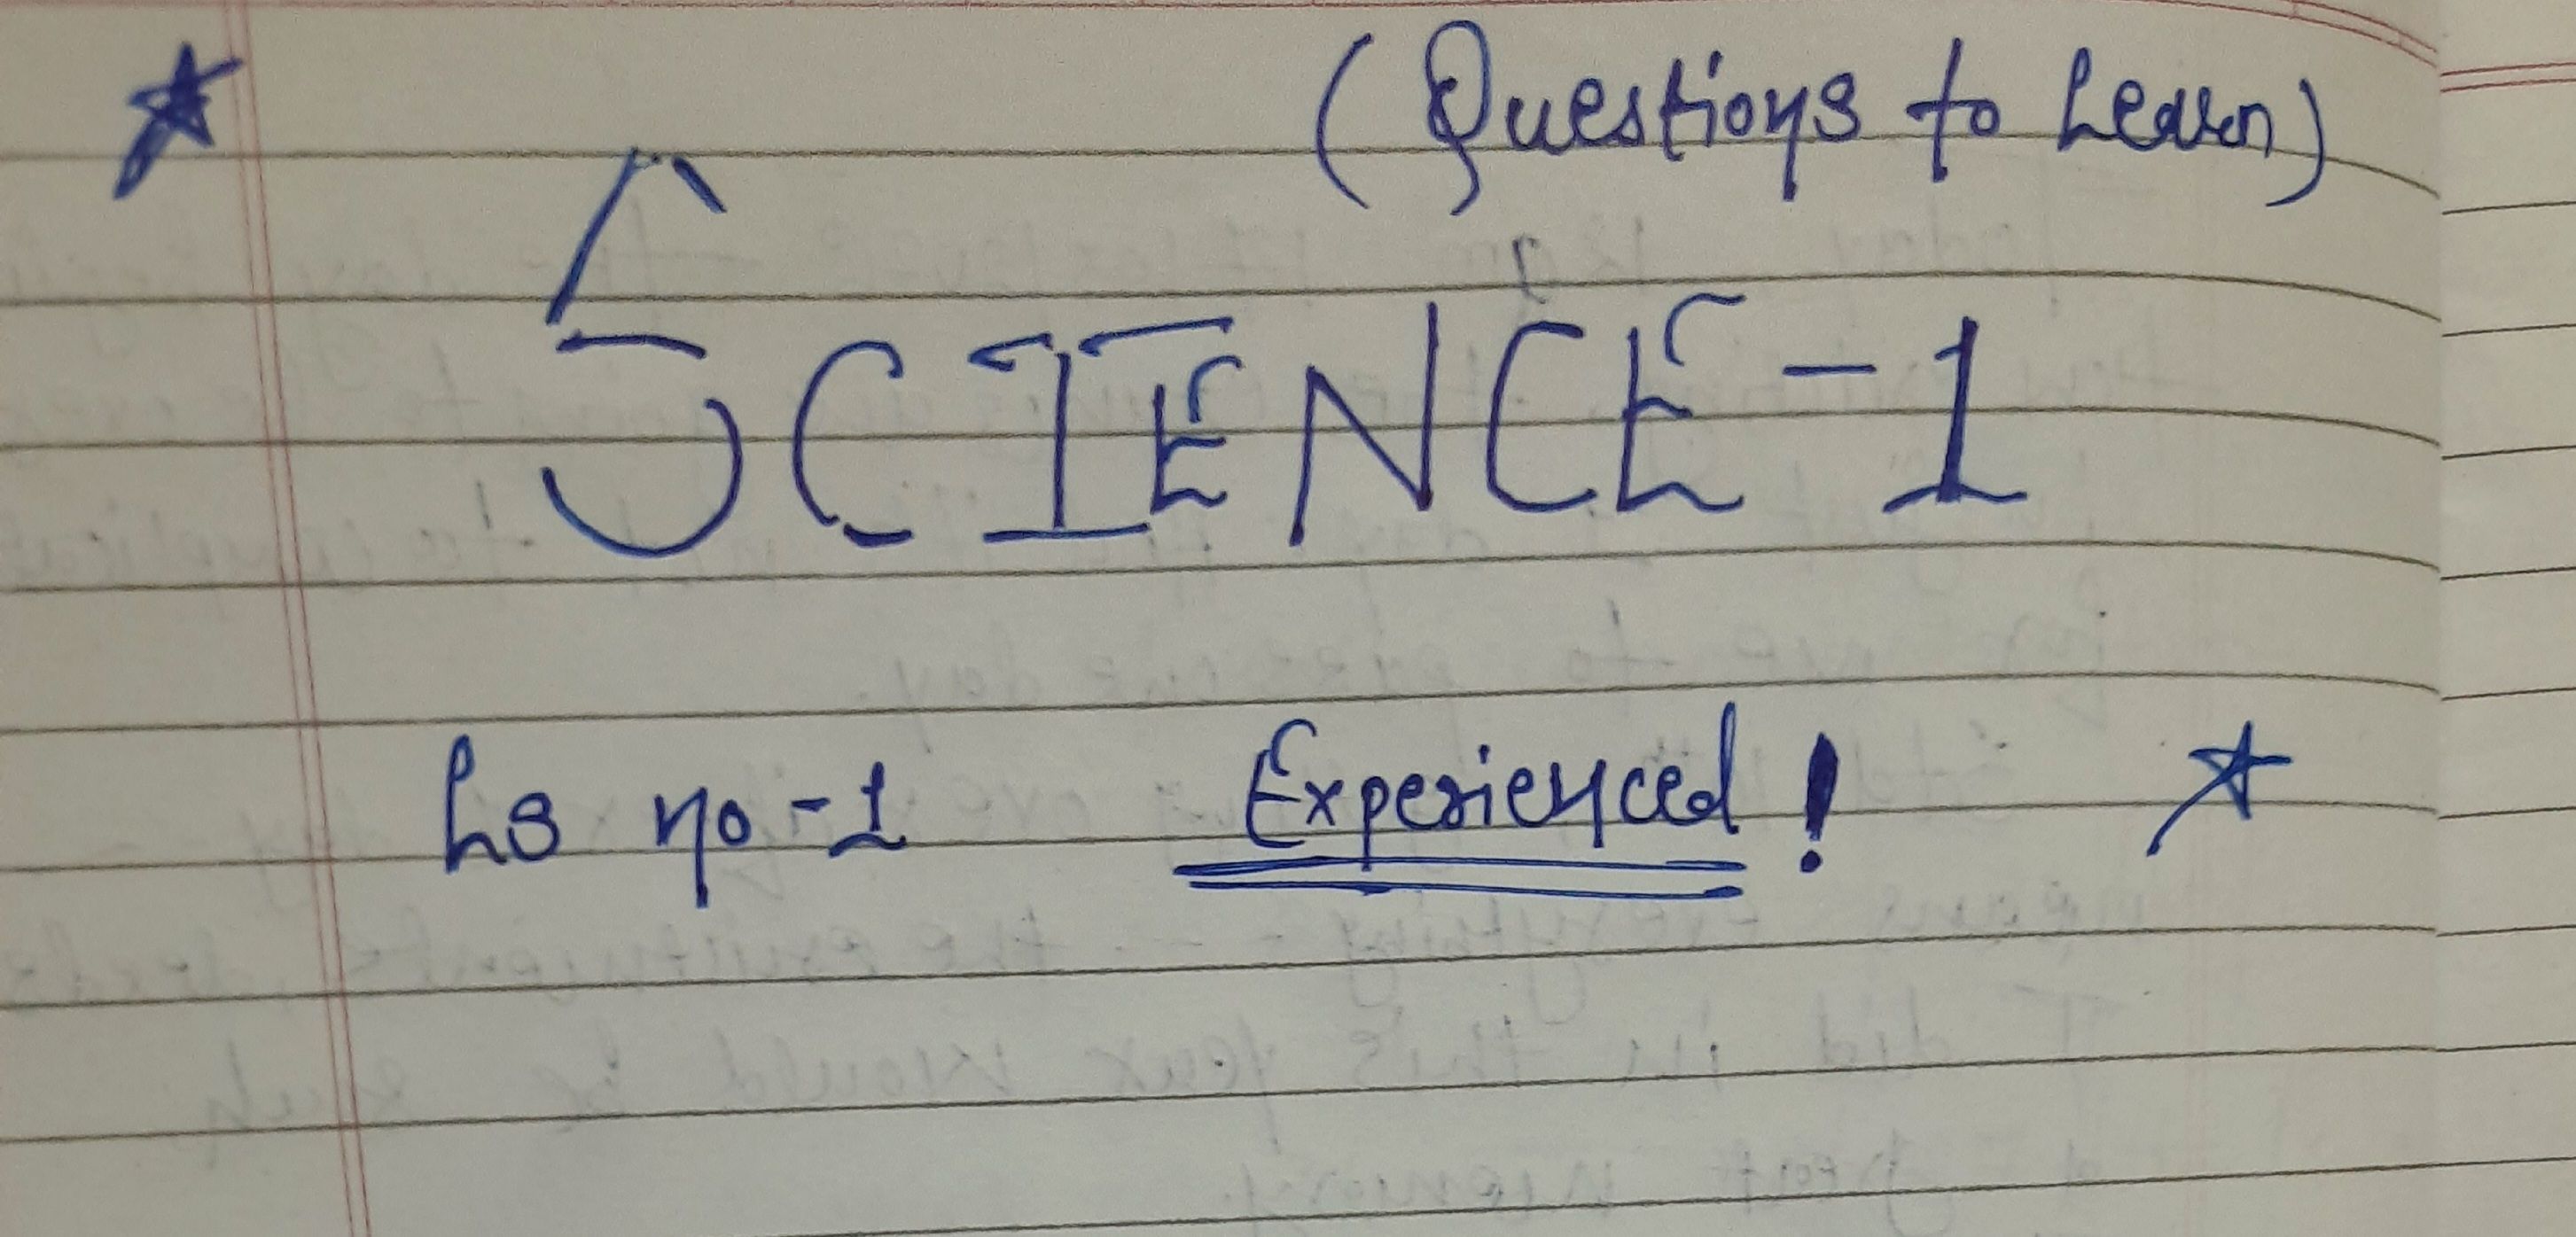 (Questions to Learn)
SCIENCE-1
Ls no-1 Experienced!